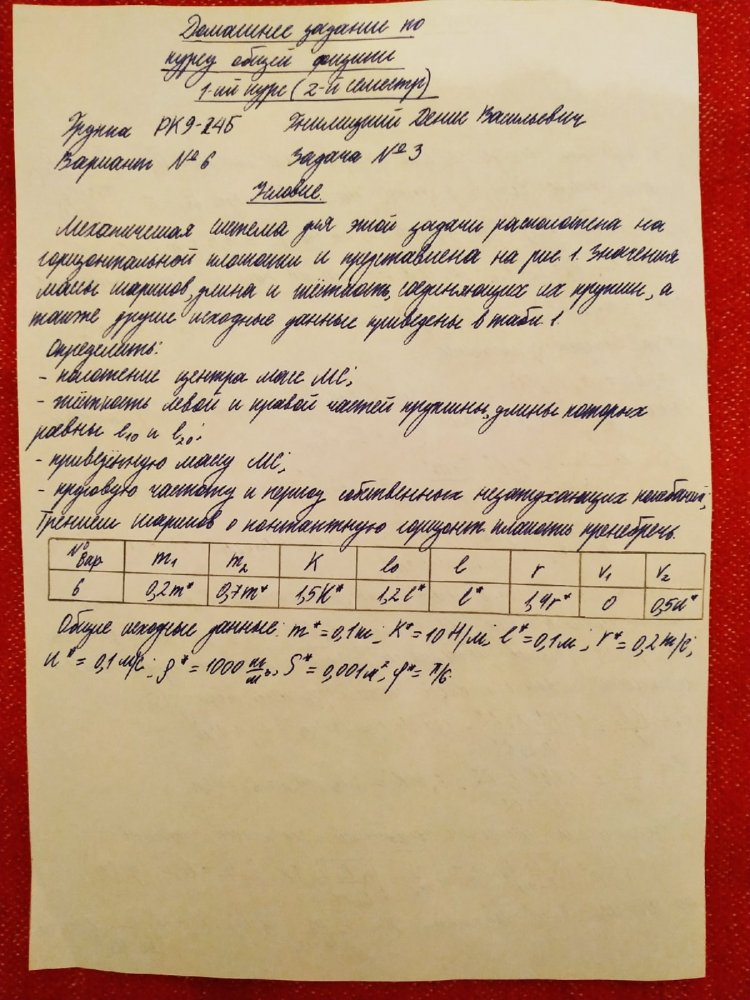 Домашнее задание по
курсу общей физики
1-ий курс (2-й семестр)
Группа РК9-24Б Гнилицкий Денис Васильевич
Вариант №6 Задача №3
Условие.
Механическая система для этой задачи расположена на
горизонтальной плоскости и представлена на рис 1. Значения
массы шариков, длина и жёсткость, соединяющих их пружин, а
также другие исходные данные приведены в табл 1.
Определить:
- положение центра масс МС;
- жёсткость левой и правой частей пружины, длины которых
равны l₁₀ и l₂₀;
- приведённую массу МС;
- круговую частоту и период собственных незатухающих колебаний;
Трением шариков о контактную горизонт. плоскость пренебречь.
№ вар. m₁ m₂ K l₀ l r v₁ v₂
6 0,2m* 0,7m* 1,5K* 1,2l* l* 1,4r* 0 0,5u*
Общие исходные данные: m* = 0,1 кг; K* = 10 Н/м; l* = 0,1 м; r* = 0,2 кг/с;
u* = 0,1 м/с; ρ* = 1000 кг/м³; S* = 0,001 м²; φ* = π/6.